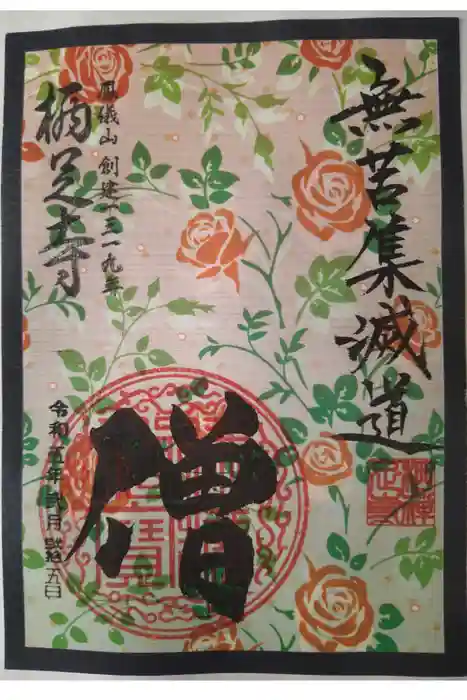 無苦集滅道
増
鳳儀山 創建一三一九年
栖足寺
令和五年 弐月 拾五日